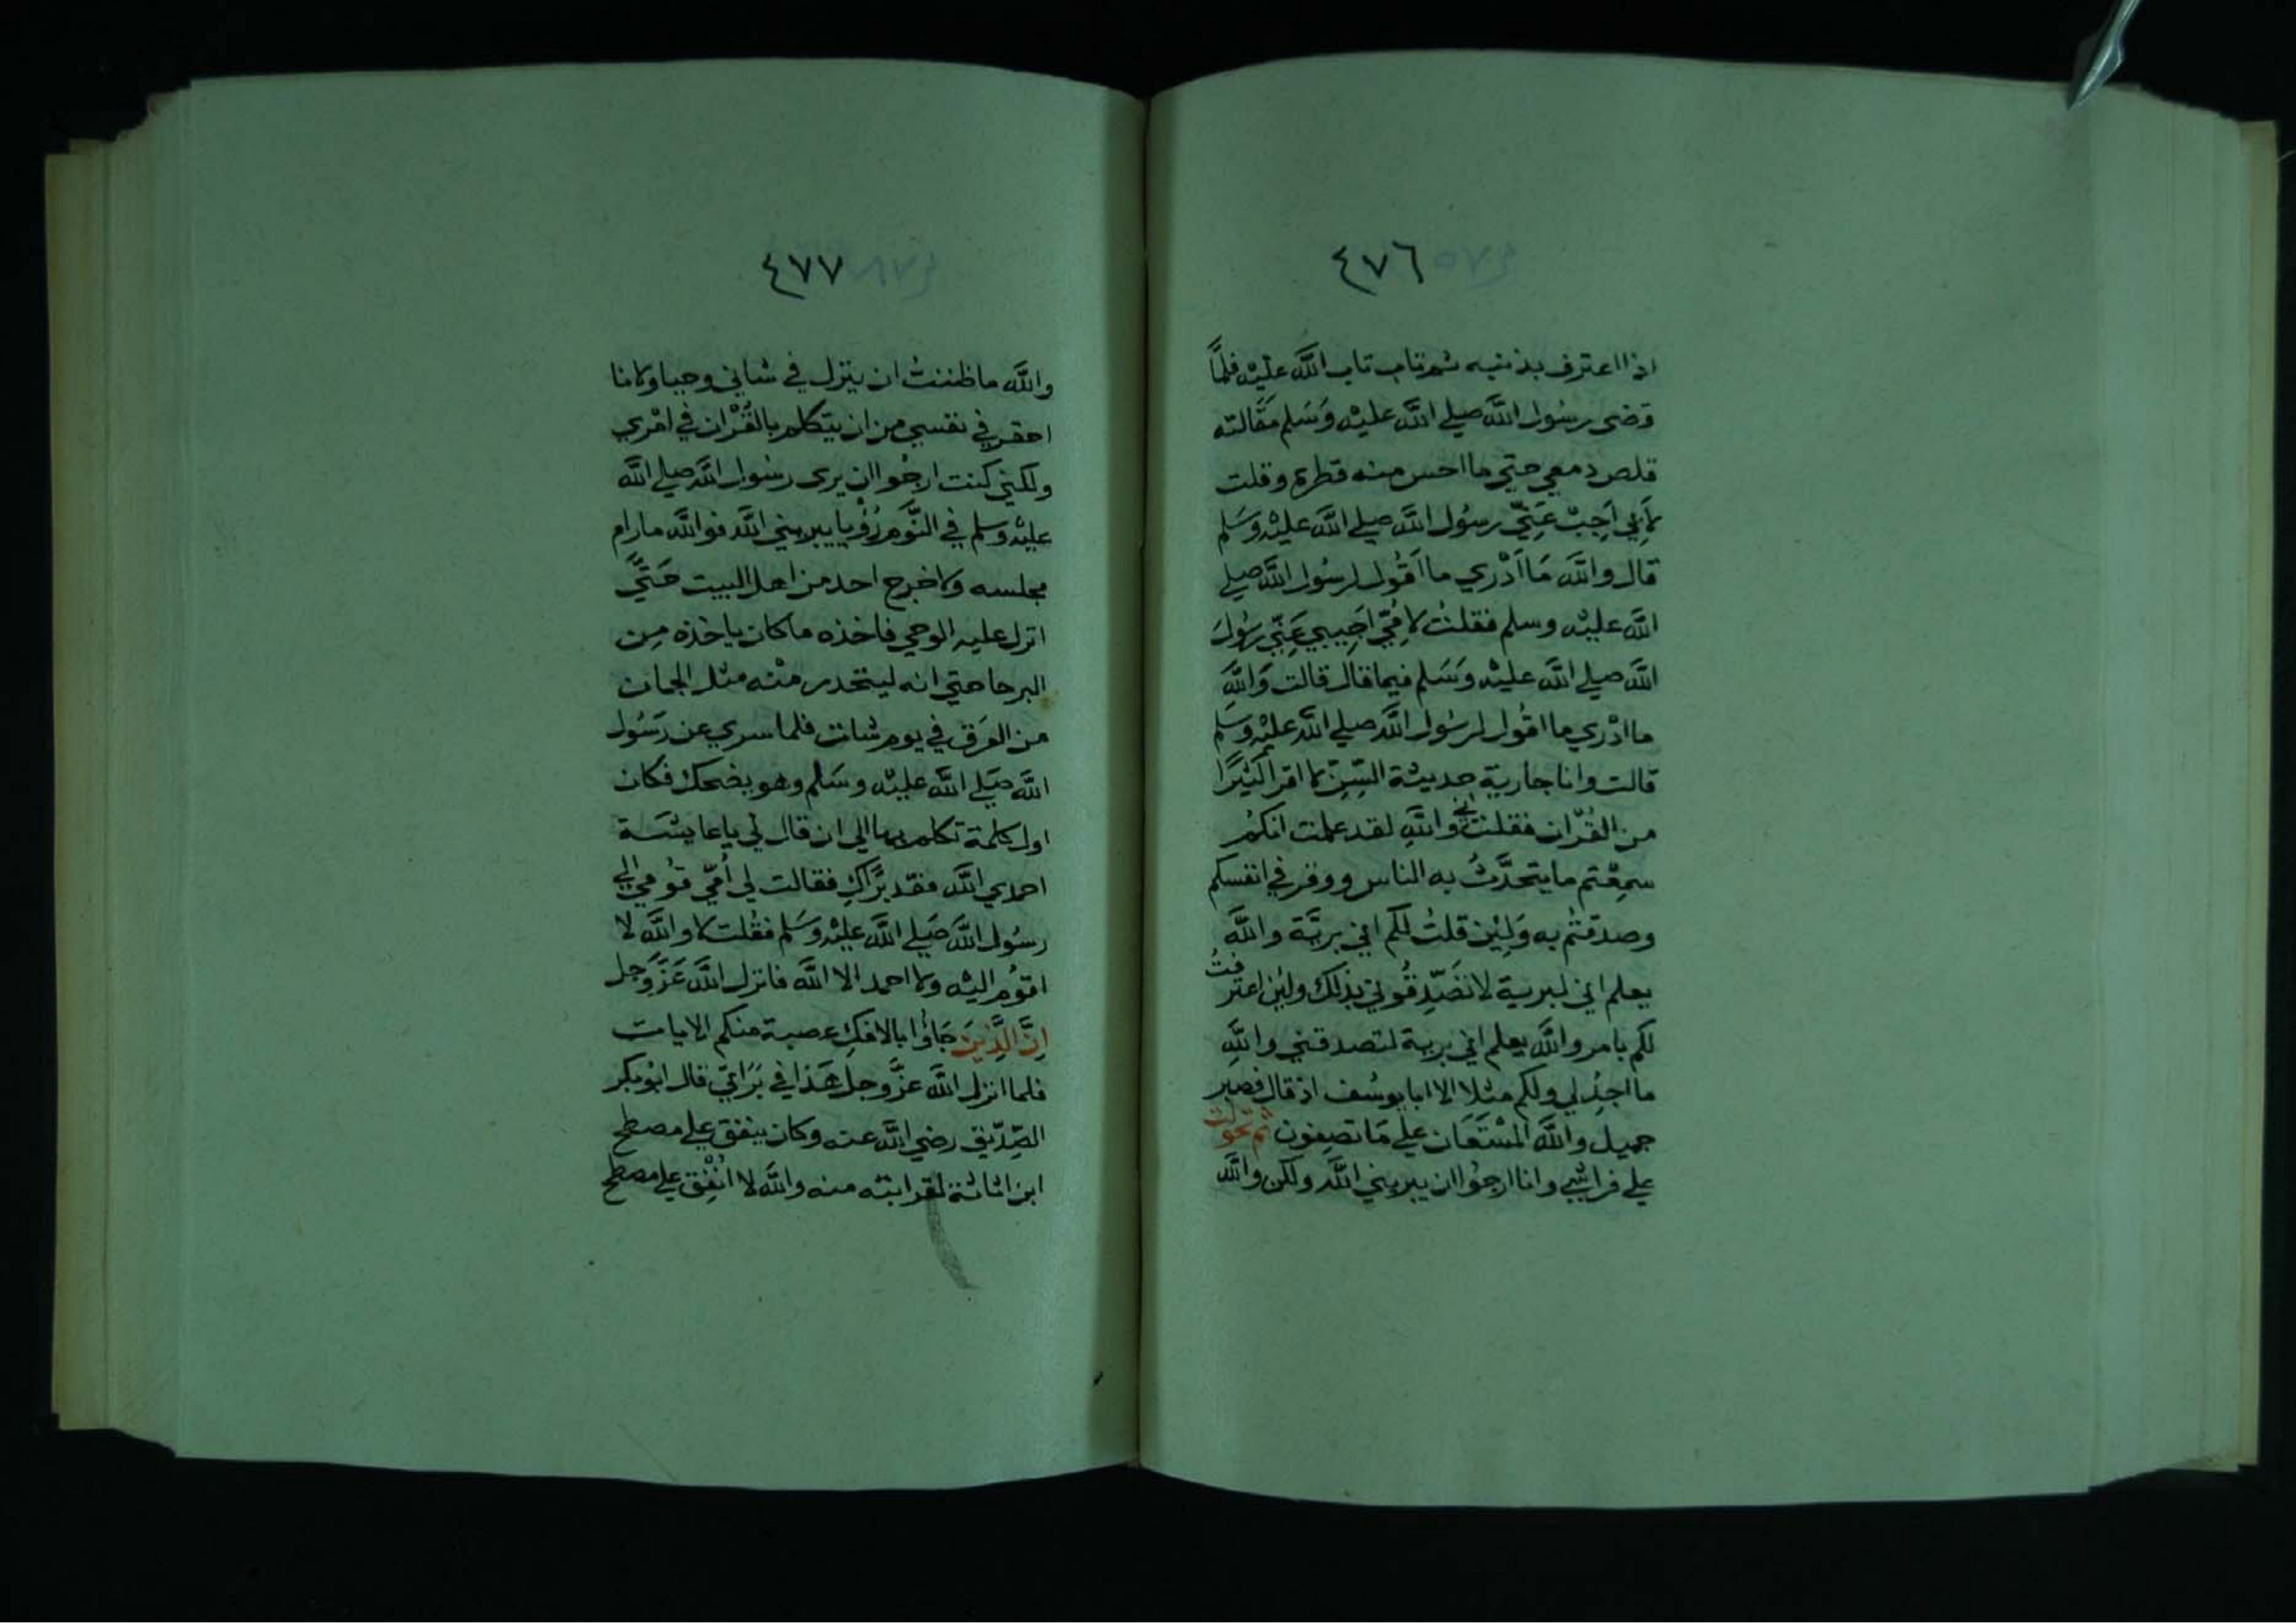 ٤٧٦
اذا اعترف بذنبه ثم تاب تاب الله عليْه فلمَّا
قضى رسُول الله صلي الله عليْه وَسَلم مقَالته
قلص دمعي حتي ما احس منه قطرة وقلت
لأبِي اَجِبْ عَنِّي رسُول الله صلي الله عليْه وسَلم
قال والله مَا اَدْري ما اَقُول لرسُول الله صلي
الله عليْه وسلم فقلتُ لامُّي اَجِيبي عَنِّي رسُولَ
الله صلي الله عليْه وَسَلم فيما قال قالت وَاللهِ
ما ادْري ما اقُول لرسُول الله صلي الله عليْه وسَلم
قالت وانا جارية حديثة السِّنِّ لا اقرا كثيْرًا
من القُرْان فقلتُ اني واللهِ لقد علمت انكم
سمِعْتم ما يتحدَّثُ به الناس ووقر في انفسكم
وصدقتُم به وَلئِنْ قلتُ لكم اني بريَّة والله
يعلم اني لبرية لا تصَدِّقُوني بذلك ولئن اعترفتُ
لكم بامر والله يعلم اني برية لتصدقني واللهِ
ما اجدُ لي ولكم مثلا الا ابا يوسُف اذ قال فصبر
جميل والله المسْتَعَان علي مَا تصِفون ثم تحولت
علي فراشي وانا ارجوُا ان يبريني الله ولكن والله
٤٧٧
والله ما ظننتُ ان ينزل في شاني وحيا ولانا
احقر في نفسي من ان يتكلم بالقُرْان في امْري
ولكني كنت ارجُوا ان يرى رسُول الله صلي الله
عليْه وسلم في النَّومِ رُؤْيا يبريني الله فوالله مارام
مجلسه ولا خرج احد من اهل البيت حَتَّي
انزل عليه الوحي فاخذه ما كان ياخذه مِن
البرحا حتي انه ليتحدر منْه مثل الجمان
من العَرَق في يوم شات فلما سري عن رَسُول
الله صَلي الله عليْه وسَلم وهو يضحك فكان
اول كلمة تكلم بها الي ان قال لي يا عايشة
احمدي الله فقد برَّاكِ فقالت لي اُمِّي قوُمي الي
رسُول الله صَلي الله عليْه وسَلم فقُلت لا والله لا
اقوُم اليْه ولا احمد الا الله فانزل الله عَزَّ وَجل
اِنَّ الَّذِينَ جَاؤُا بالافكِ عصبة منكم الايات
فلما انزل الله عزَّ وجل هَذا في بَرَاءتي قال ابوُبكر
الصِّدّيق رضي الله عنه وكان ينفق علي مصطح
ابن اثاثة لقرابته منه والله لا اُنْفِق علي مصطح